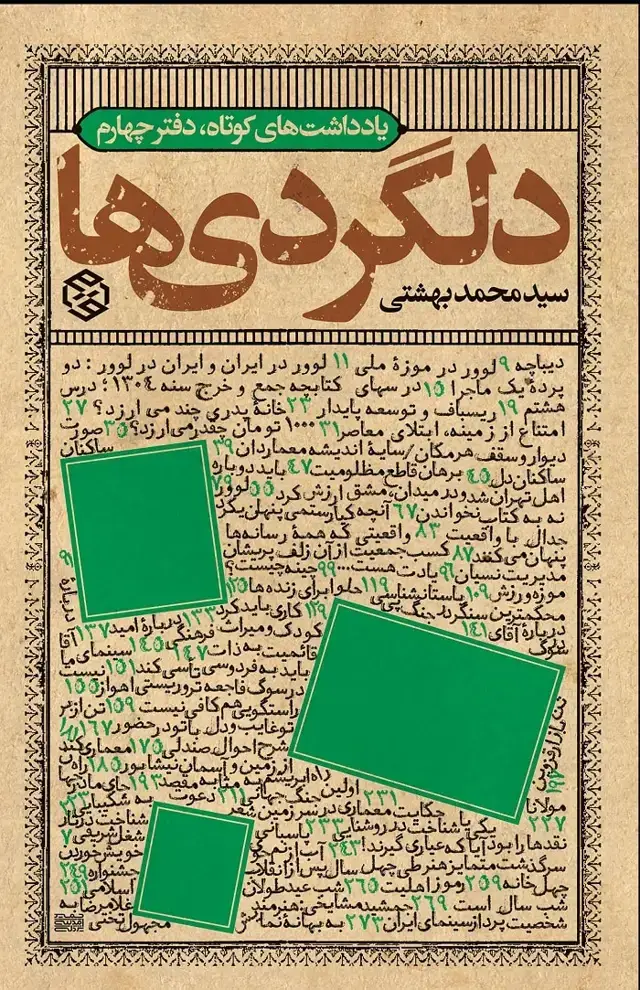 یادداشت‌های کوتاه، دفتر چهارم
دلگردی‌ها
سید محمد بهشتی
دیباچه ۹ لوور در موزهٔ ملی ۱۱ لوور در ایران و ایران در لوور : دو
پردهٔ یک ماجرا ۱۵ درسهای کتابچه جمع و خرج سنه ۱۳۰۴ ؛ درس
هشتم ۱۹ ریسباف و توسعه پایدار ۲۳ خانهٔ پدری چند می ارزد؟ ۲۷
امتناع از زمینه، ابتلای معاصر ۳۱ ۱۰۰۰ تومان چقدر می‌ارزد؟ ۳۵ صورت
دیوار و سقف هر مکان/سایهٔ اندیشه معماردان ۳۹ ساکنان
ساکنان دل ۴۵ برهان قاطع مظلومیت ۴۷ باید دوباره
اهل تهران شد و در میدان، مشق ارزش کرد ۵۵ لوور ۷۹
نه به کتاب نخواندن ۶۷ آنچه کیارستمی پنهان نکرد
جدال با واقعیت ۸۳ واقعیتی که همهٔ رسانه‌ها
پنهان می‌کنند ۸۷ کسب جمعیت از آن زلف پریشان ۹۱
مدیریت نسیان ۹۶ یادت هست... ۹۹ چینه چیست؟
موزه ورزش ۱۰۹ باستانشناسی ۱۱۹ حلوا برای زنده ها ۱۲۵ دربارهٔ
محکمترین سنگر در جنگ ۱۲۹ کاری باید کرد ۱۳۳ دربارهٔ امید ۱۳۷ آقا
دربارهٔ آقای ۱۴۱ کودک و میراث فرهنگی ۱۴۵ سینمای ما
سوگ قائمیت به ذات ۱۴۷
باید به فردوسی تأسی کند ۱۵۱ نیست
در سوگ فاجعه تروریستی اهواز ۱۵۵
راستگویی هم کافی نیست ۱۵۹ تن از بر
تو غایب و دل با تو در حضور ۱۶۷
شرح احوال صندلی ۱۷۵ معماری کند
از زمین و آسمان نیشابور ۱۸۵ راه
راه ابریشم به مثابه مقصد ۱۹۳ جای مادر
اولین جنگ جهانی ۲۱۱ دعوت به شکیبایی ۲۲۳
مولانا ۲۳۱ حکایت معماری در سرزمین شعر
۲۲۷ یکی یا شناخت در روشنایی ۲۳۳ باستانی شناخت در تاریک
نقدها را بود آیا که عیاری گیرند! ۲۴۳ آب از نم شغل شریفی ۷
سرگذشت متمایز هنر طی چهل سال پس از انقلاب خویش خوردن
چهل خانه ۲۵۹ رموز اهلیت ۲۶۵ شب عید طولانی جشنواره ۲۴۹
شب سال است ۲۶۹ جمشید مشایخی: هنرمند اسلامی ۲۵۱
شخصیت پرداز سینمای ایران ۲۷۳ به بهانهٔ نمایش غلامرضا به
مجهول تختی